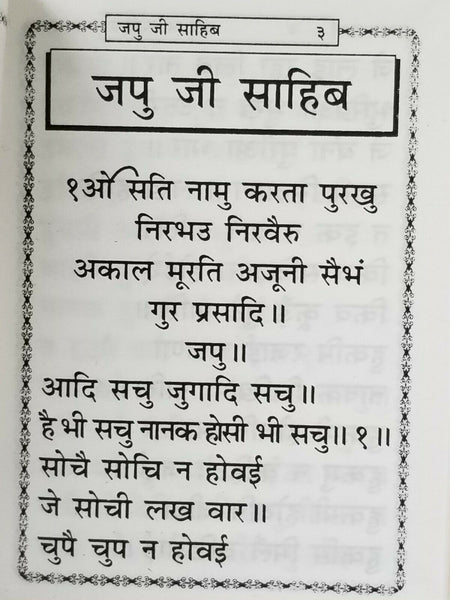 जपु जी साहिब ३
जपु जी साहिब
१ओ सति नामु करता पुरखु
निरभउ निरवैरु
अकाल मूरति अजूनी सैभं
गुर प्रसादि॥
जपु॥
आदि सचु जुगादि सचु॥
है भी सचु नानक होसी भी सचु॥१॥
सोचै सोचि न होवई
जे सोची लख वार॥
चुपै चुप न होवई